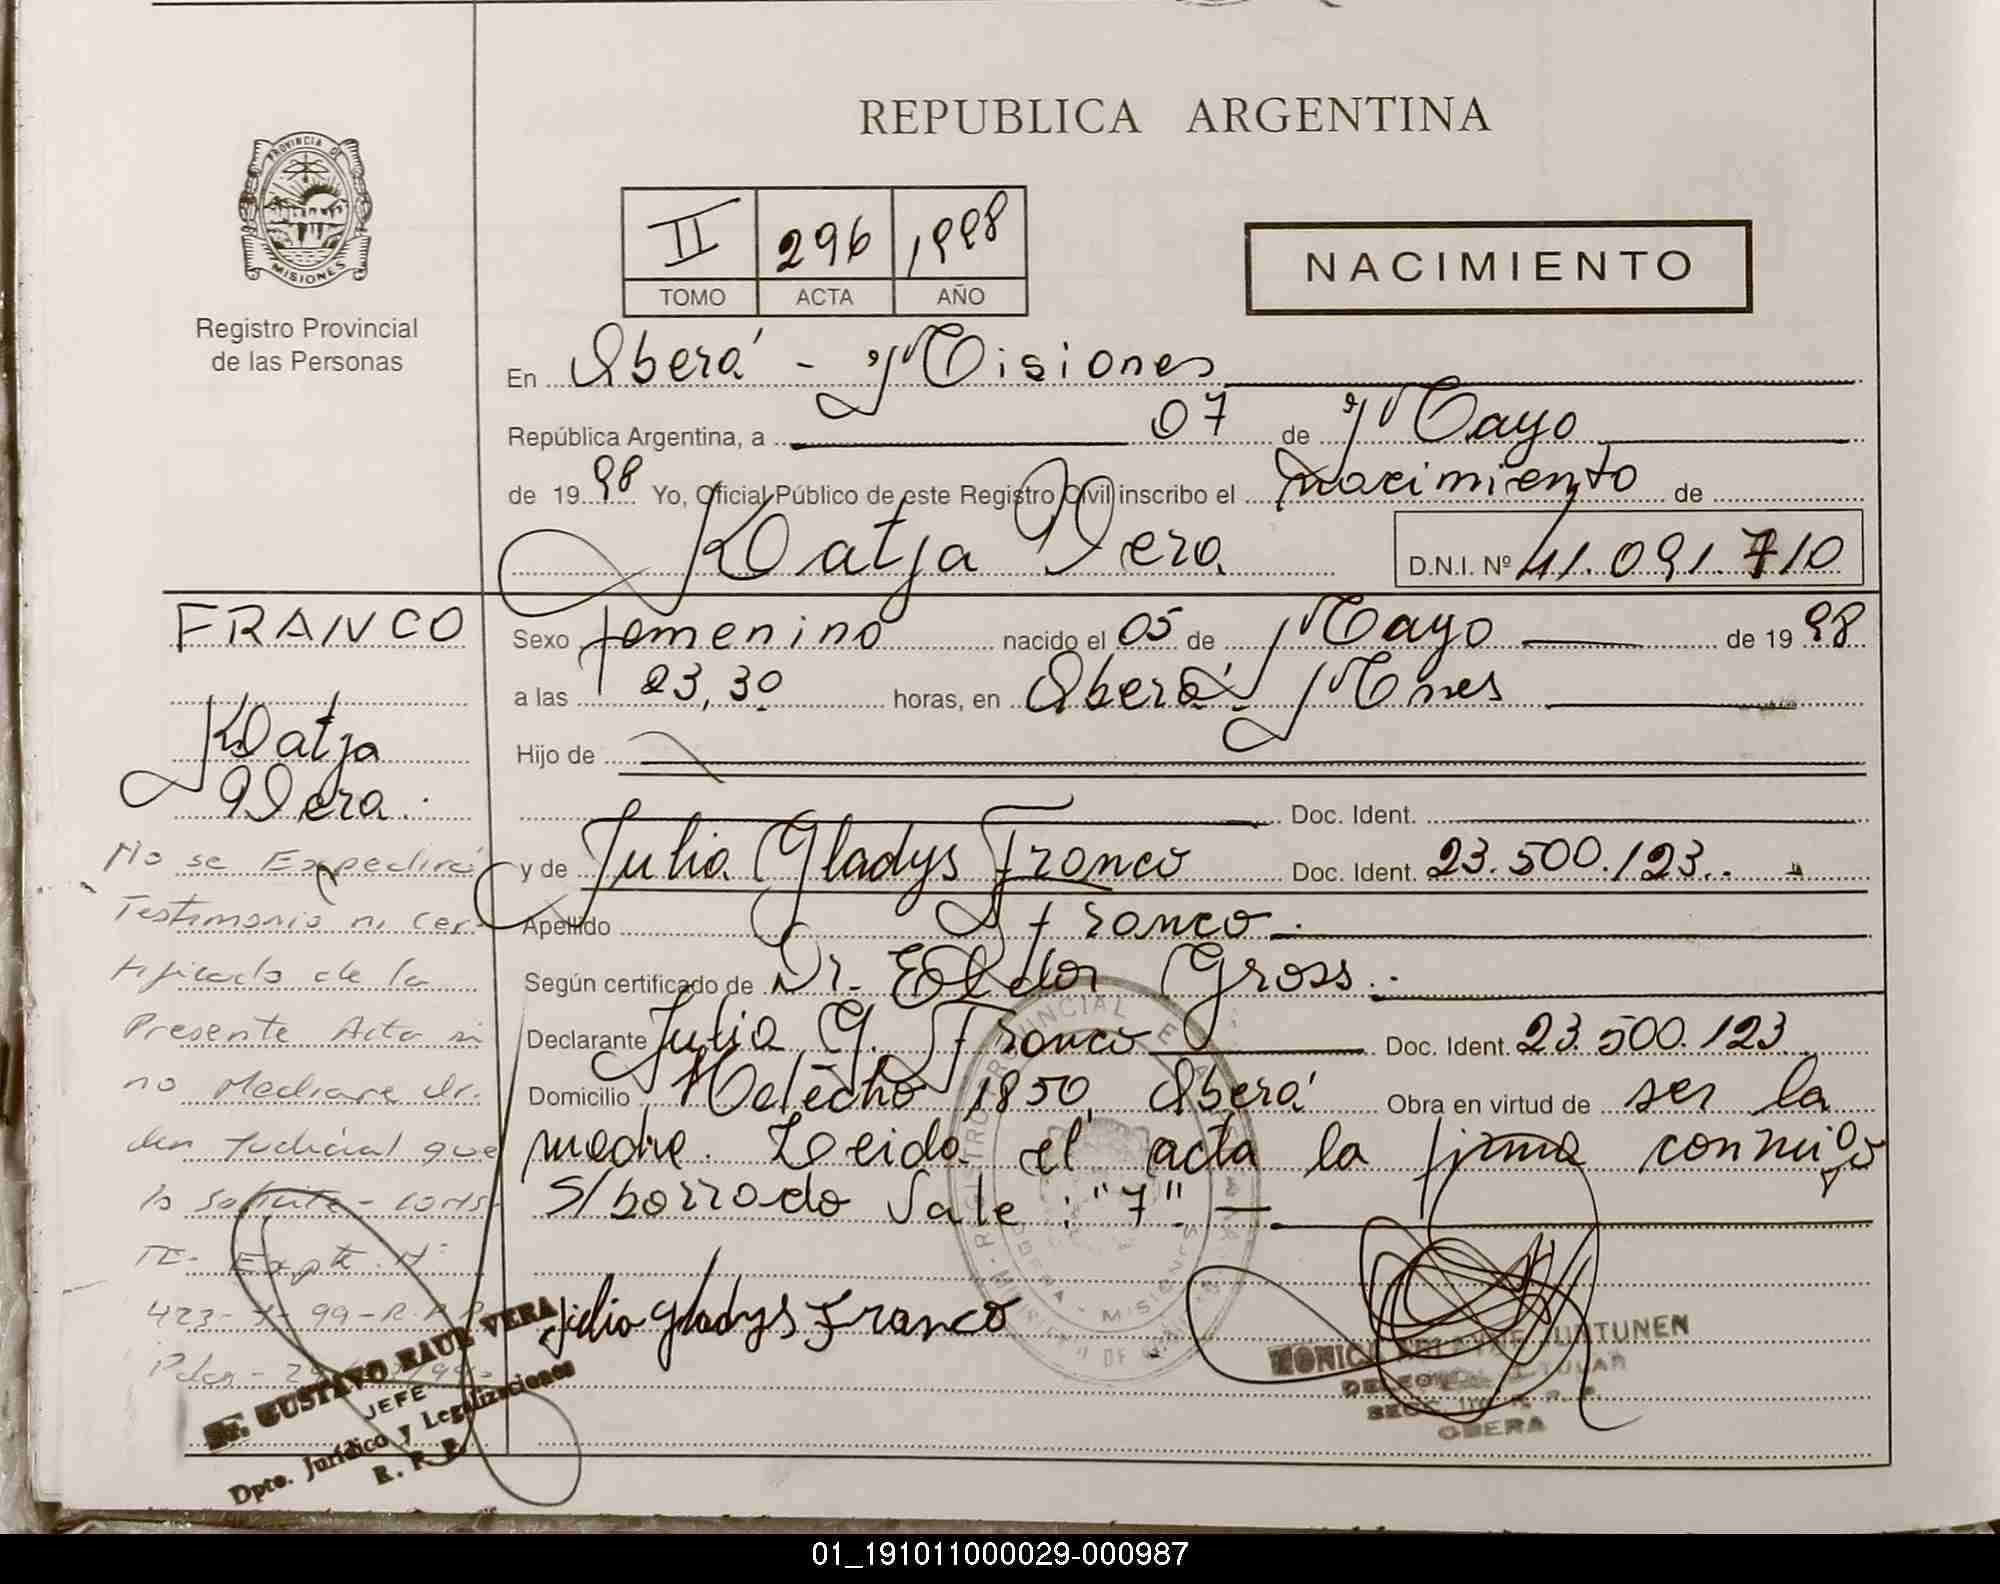 REPUBLICA ARGENTINA
PROVINCIA DE
MISIONES
Registro Provincial
de las Personas
II 296 1998
TOMO ACTA AÑO
NACIMIENTO
En Oberá - Misiones
República Argentina, a 07 de Mayo
de 19 98 Yo, Oficial Público de este Registro Civil inscribo el nacimiento de
Katja Vera D.N.I. Nº 41.091.710
Sexo femenino nacido el 05 de Mayo de 19 98
a las 23,30 horas, en Oberá - Mnes
Hijo de
Doc. Ident.
y de Julia Gladys Franco Doc. Ident. 23.500.123..
Apellido Franco.
Según certificado de Dr. Eldor Gross.
Declarante Julia G. Franco Doc. Ident. 23.500.123
Domicilio 1850, Oberá Obra en virtud de ser la
madre. Leida el acta la firma conmigo
S/borrado Vale: "7" —
Julia Gladys Franco
FRANCO
Katja
Vera.
No se Expedirá
Testimonio ni cer-
tificado de la
Presente Acta si
no Mediare Or-
den Judicial que
lo solicite - cons-
TE - Expte. Nº
GUSTAVO RAUL VERA
JEFE
Dpto. Jurídico y Legalizaciones
R. P. P.
OBERA
01_191011000029-000987